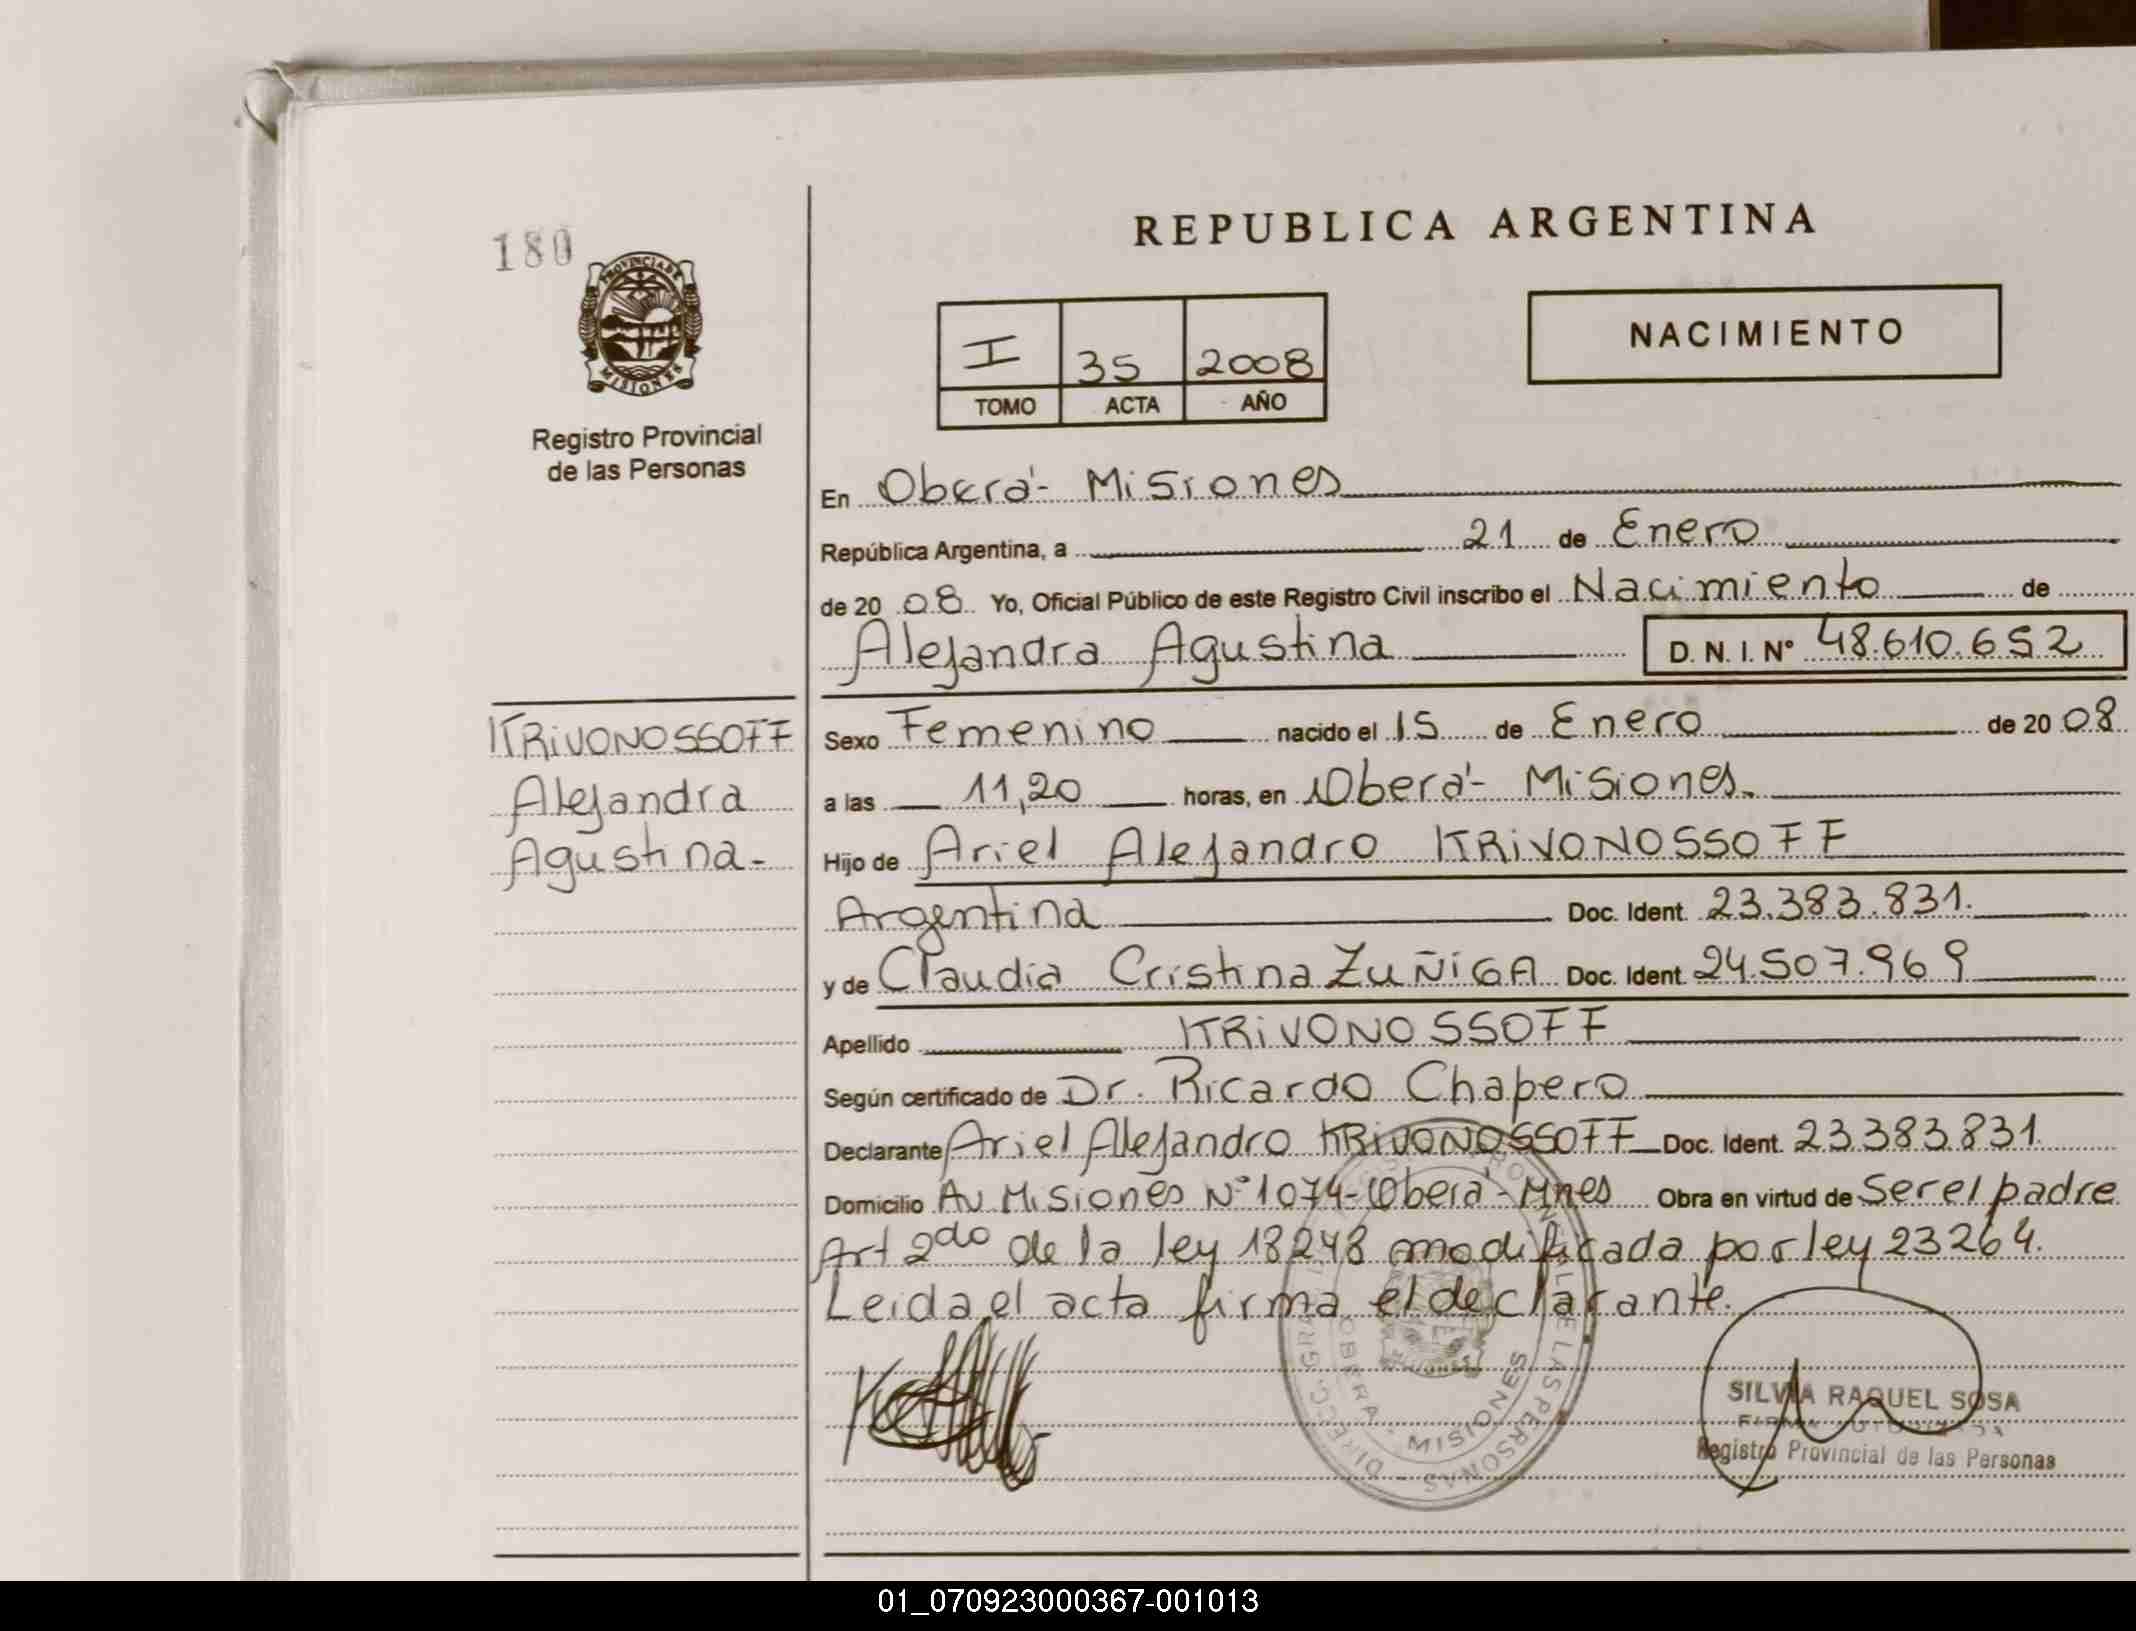 180
PROVINCIA DE
MISIONES
Registro Provincial
de las Personas
REPUBLICA ARGENTINA
I 35 2008
TOMO ACTA AÑO
NACIMIENTO
En Oberá - Misiones
República Argentina, a 21 de Enero
de 20 08 Yo, Oficial Público de este Registro Civil inscribo el Nacimiento de
Alejandra Agustina D. N. I. N° 48.610.652
KRIVONOSSOFF
Alejandra
Agustina-
Sexo Femenino nacido el 15 de Enero de 20 08
a las 11,20 horas, en Oberá - Misiones.
Hijo de Ariel Alejandro KRIVONOSSOFF
Argentina Doc. Ident. 23.383.831.
y de Claudia Cristina ZUÑIGA Doc. Ident. 24.507.969
Apellido KRIVONOSSOFF
Según certificado de Dr. Ricardo Chapero
Declarante Ariel Alejandro KRIVONOSSOFF Doc. Ident. 23.383.831.
Domicilio Av Misiones N° 1074 - Oberá - Mnes Obra en virtud de Ser el padre
Art 2do de la ley 18248 modificada por ley 23264.
Leida el acta firma el declarante.
OBERA - MISIONES
SILVIA RAQUEL SOSA
FIRMA AUTORIZADA
Registro Provincial de las Personas
01_070923000367-001013